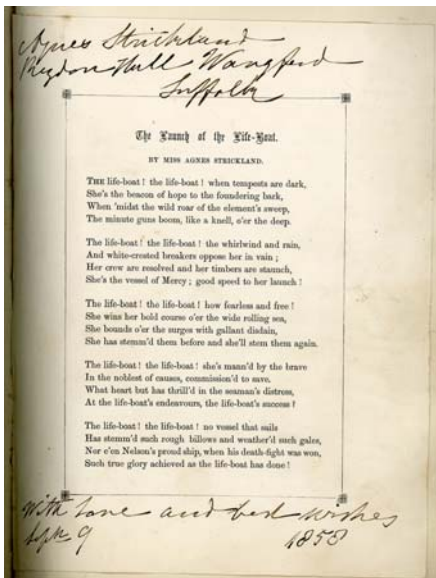 Agnes Strickland
Reydon Hall Wangford
Suffolk
The Launch of the Life-Boat.
BY MISS AGNES STRICKLAND.
THE life-boat! the life-boat! when tempests are dark,
She's the beacon of hope to the foundering bark,
When 'midst the wild roar of the element's sweep,
The minute guns boom, like a knell, o'er the deep.
The life-boat! the life-boat! the whirlwind and rain,
And white-crested breakers oppose her in vain;
Her crew are resolved and her timbers are staunch,
She's the vessel of Mercy; good speed to her launch!
The life-boat! the life-boat! how fearless and free!
She wins her bold course o'er the wide rolling sea,
She bounds o'er the surges with gallant disdain,
She has stemm'd them before and she'll stem them again.
The life-boat! the life-boat! she's mann'd by the brave
In the noblest of causes, commission'd to save.
What heart but has thrill'd in the seaman's distress,
At the life-boat's endeavours, the life-boat's success!
The life-boat! the life-boat! no vessel that sails
Has stemm'd such rough billows and weather'd such gales,
Nor e'en Nelson's proud ship, when his death-fight was won,
Such true glory achieved as the life-boat has done!
With love and best wishes
Sept 9 1858